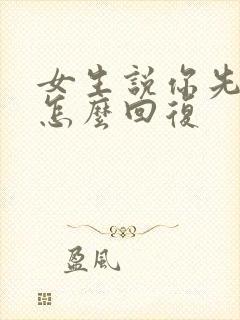 女生說你先
怎麼回復
盈風